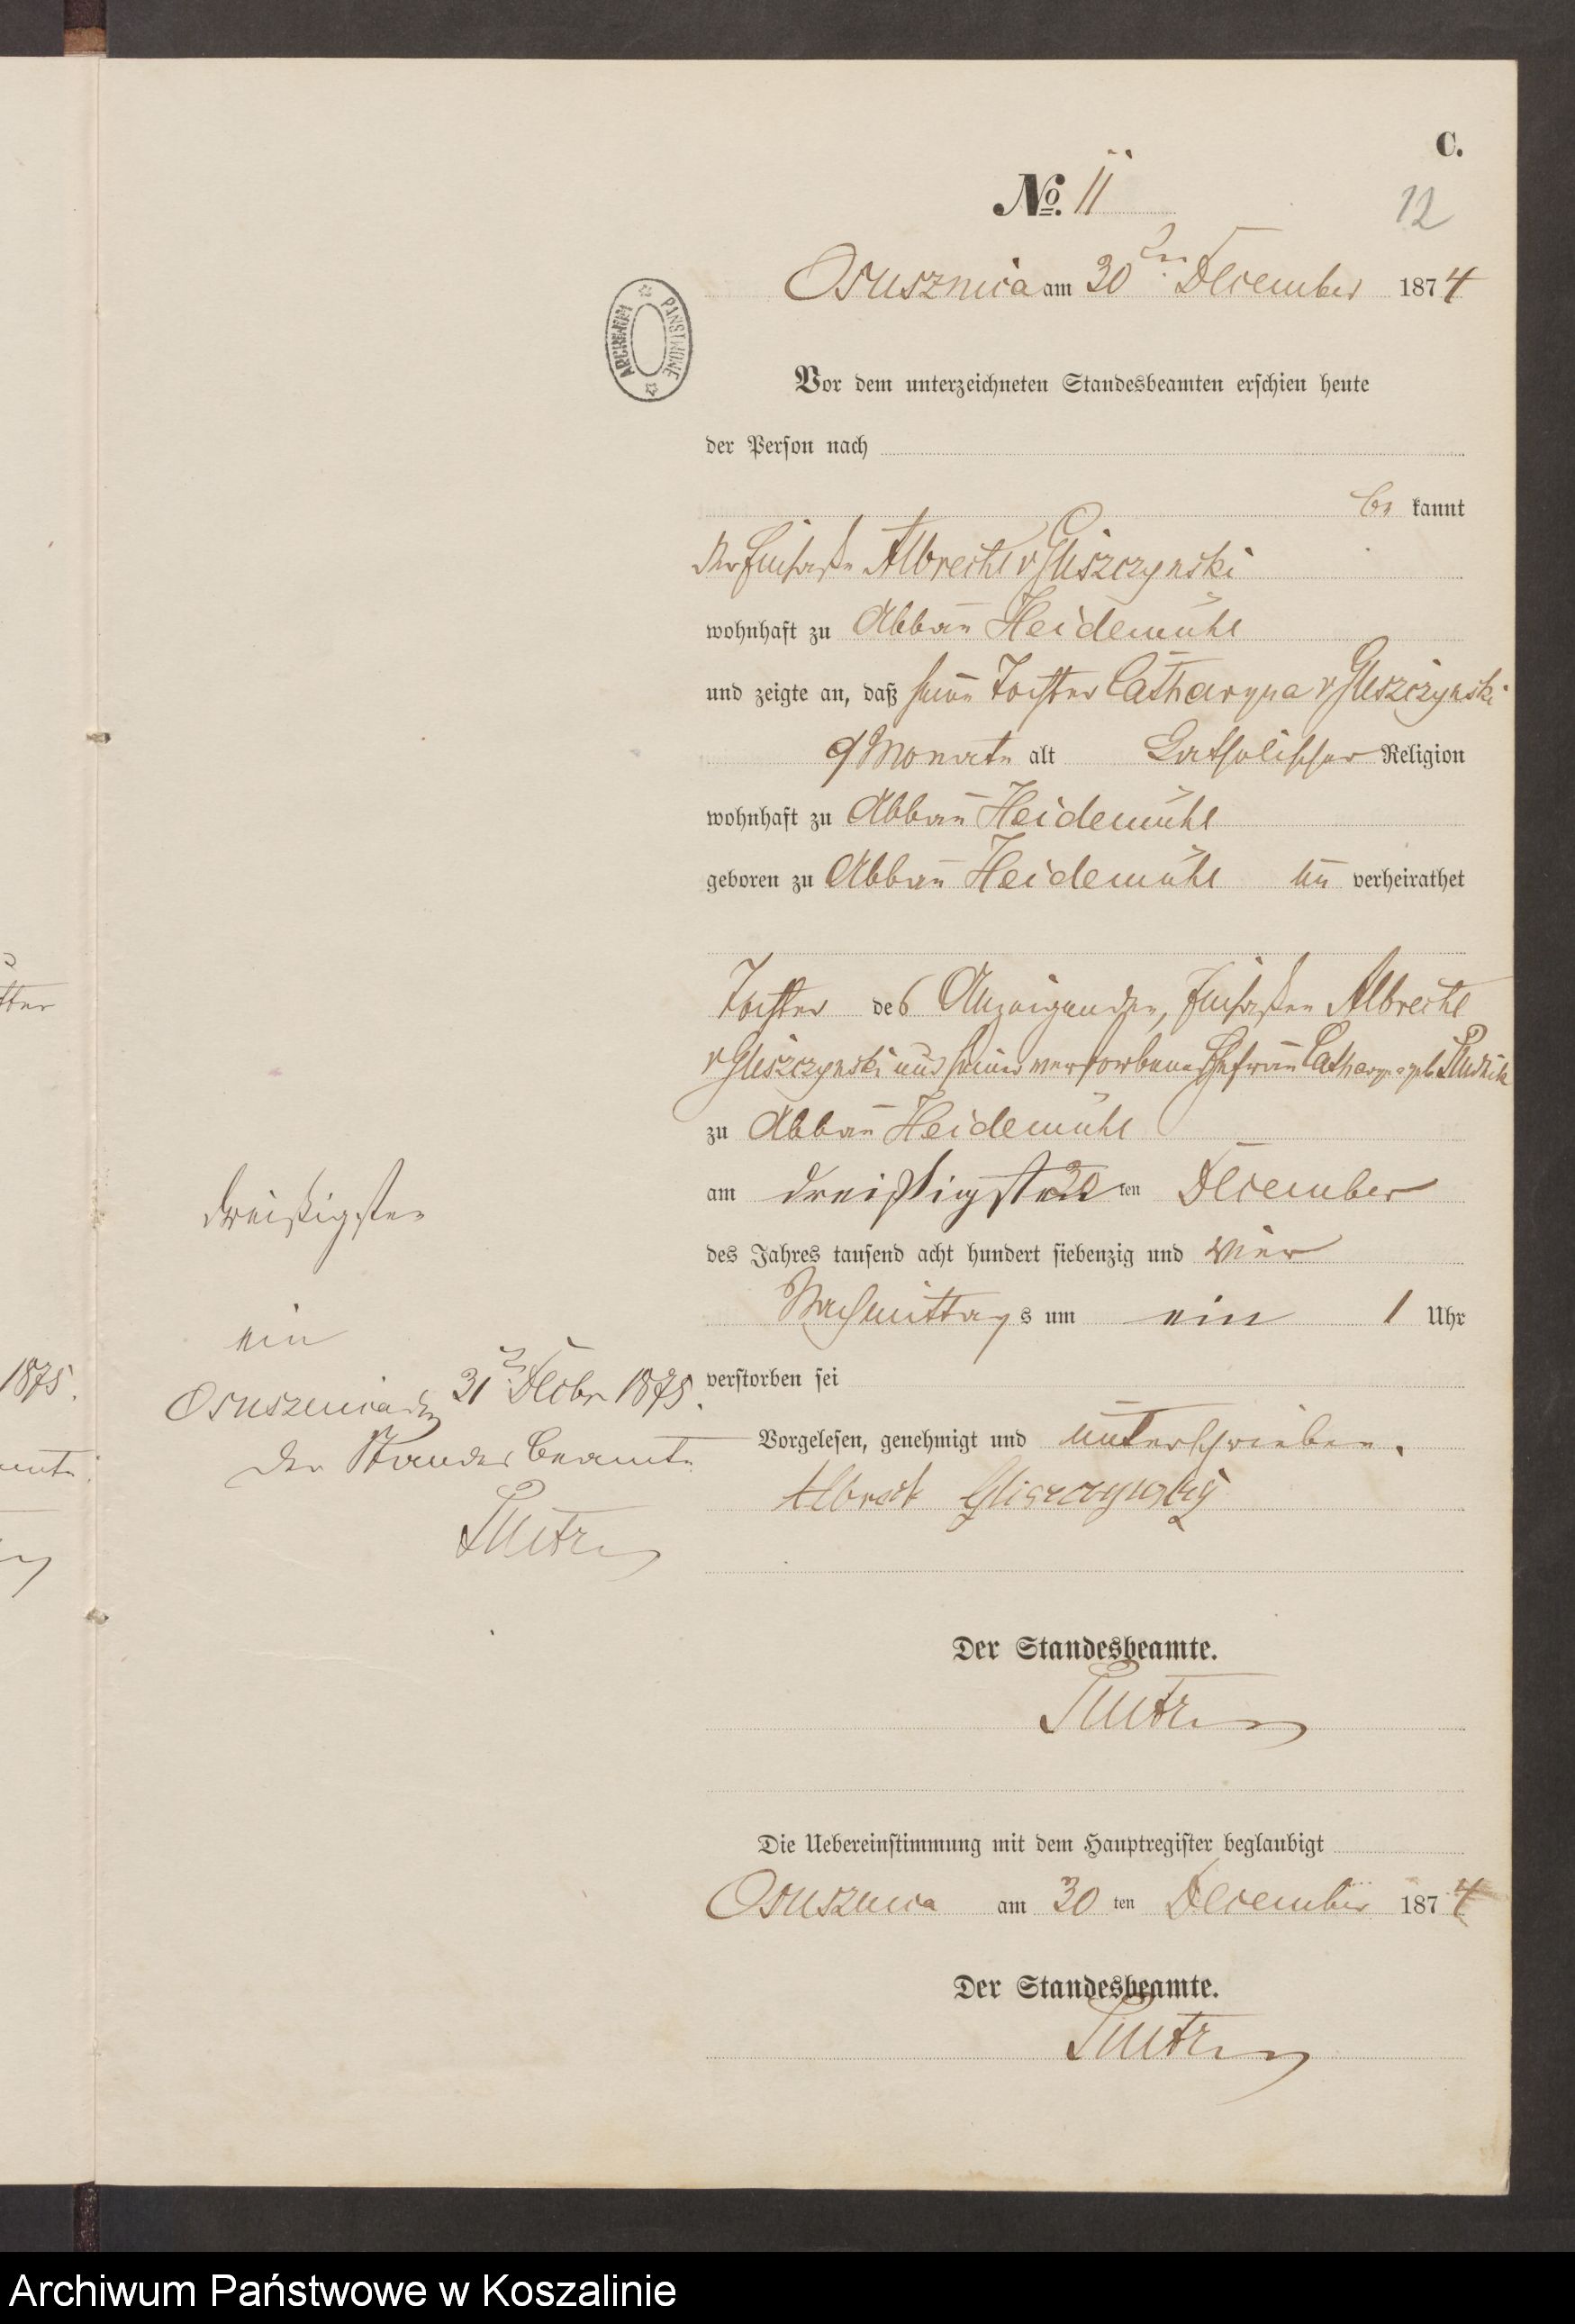 C.
No. 11
12
Osusznica am 30ten December 1874
ARCHIWUM PAŃSTWOWE
Vor dem unterzeichneten Standesbeamten erschien heute
der Person nach
be kannt
der Einsaße Albrecht v Gliszczynski
wohnhaft zu Abbau Heidemühl
und zeigte an, daß seine Tochter Catharyna v Gliszczynski
9 Monate alt Catholischer Religion
wohnhaft zu Abbau Heidemühl
geboren zu Abbau Heidemühl un verheirathet
Tochter des Anzeigenden, Einsaßen Albrecht
v Gliszczynski und seiner verstorbenen Ehefrau Catharyna geb
zu Abbau Heidemühl
am dreißigsten 30 ten December
des Jahres tausend acht hundert siebenzig und vier
Nachmittag s um ein 1 Uhr
verstorben sei
Vorgelesen, genehmigt und unterschrieben.
Albrecht Gliszczynsky
Der Standesbeamte.
Die Uebereinstimmung mit dem Hauptregister beglaubigt
Osusznica am 30 ten December 1874
Der Standesbeamte.
dreißigsten
ein
Osusznica den 31ten Decbr 1875.
Der Standes Beamte
1875.
Archiwum Państwowe w Koszalinie